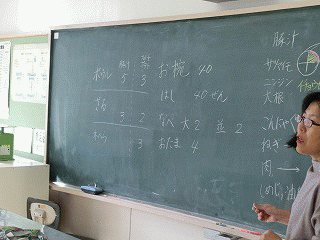 お椀 40
ボウル 5 3
はし 40ぜん
ざる 3 2
なべ 大2 並2
3 おたま 4
豚汁
サツマイモ
ニンジン
大根
こんにゃく
ねぎ
肉 →